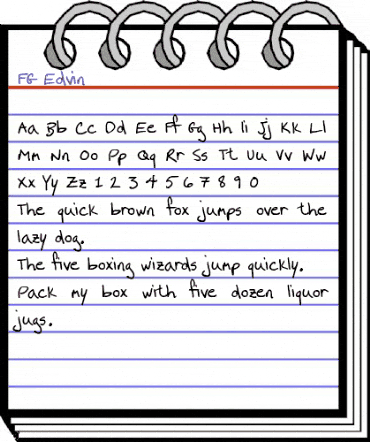 FG Edvin
Aa Bb Cc Dd Ee Ff Gg Hh Ii Jj Kk Ll
Mm Nn Oo Pp Qq Rr Ss Tt Uu Vv Ww
Xx Yy Zz 1 2 3 4 5 6 7 8 9 0
The quick brown fox jumps over the
lazy dog.
The five boxing wizards jump quickly.
Pack my box with five dozen liquor
jugs.